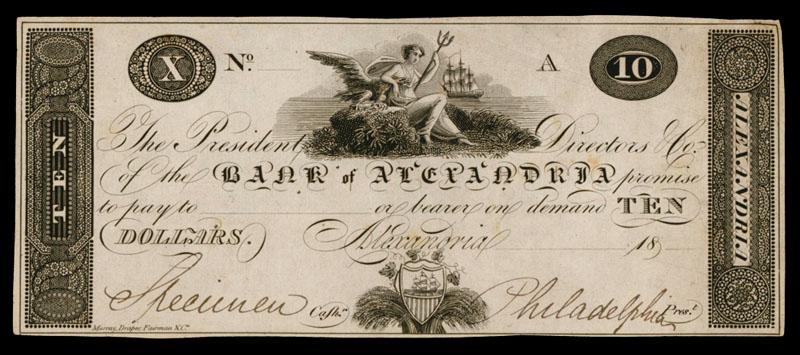 X No. A 10
The President Directors & Co.
of the BANK of ALEXANDRIA promise
to pay to or bearer on demand TEN
DOLLARS. Alexandria 18
Specimen Cashr. Philadelphia Prest.
Murray, Draper, Fairman & Co.
TEN
ALEXANDRIA